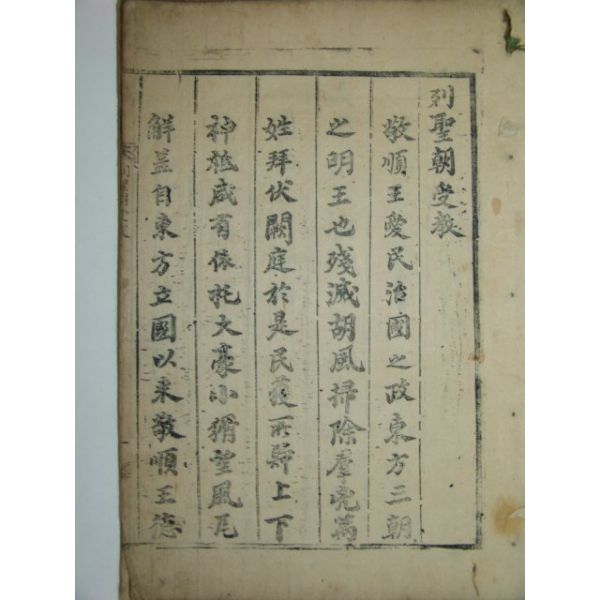 列聖朝受教
敬順王愛民治國之政東方三朝
之明王也殘滅胡風掃除羣兇萬
姓拜伏闕庭於是民莅所歸上下
神祗咸有依托大豪小猾望風瓦
觧盖自東方立國以来敬順王德